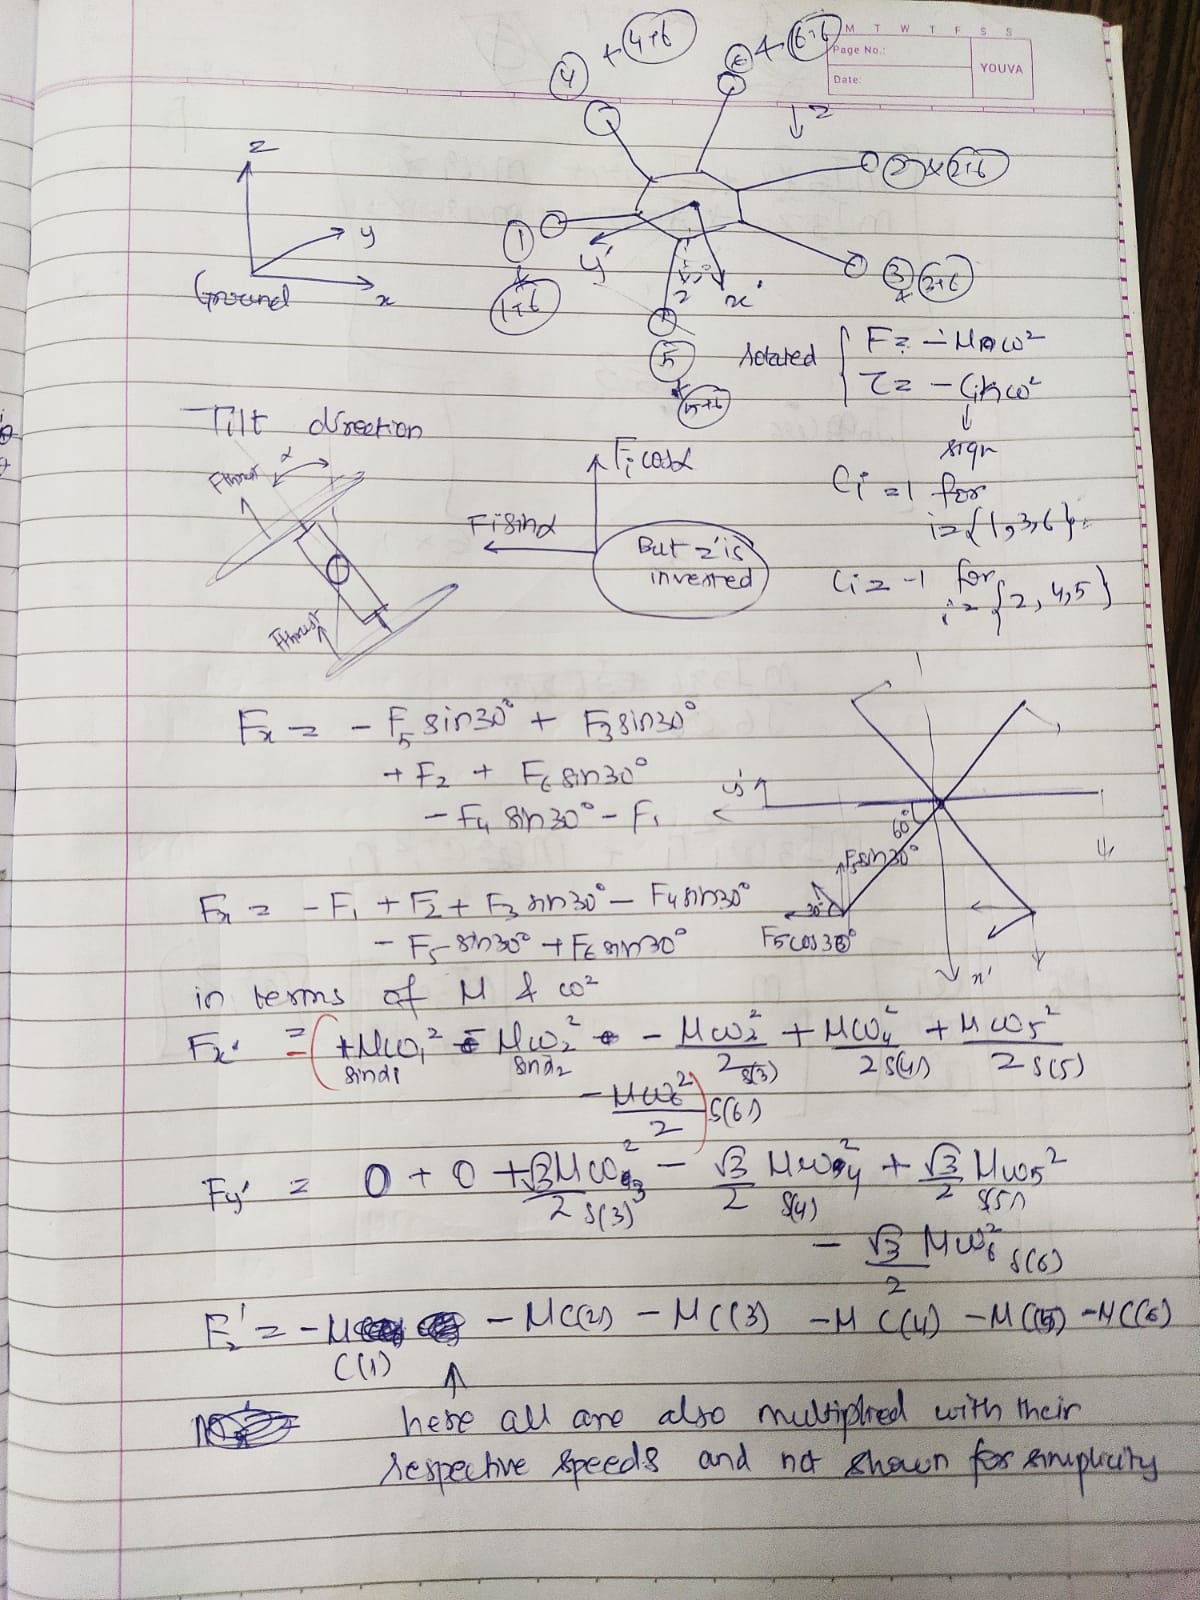 M T W T F S S
Page No.:
Date:
YOUVA
4 + 4+6
6 + 6+6
↓ z
z
y
x
Ground
2 & 2+6
1 & 1+6
y'
z
x'
3 & 3+6
5 & 5+6
rotated { F = - Mω²
τ = - Ci k ω²
↓
sign
Ci = 1 for
i = {1,3,6}
Ci = -1 for
i = {2,4,5}
Tilt direction
Fthrust α
Fthrust
Fi cosα
Fi sinα
But z' is
inverted
Fx = - F5 sin30° + F3 sin30°
+ F2 + F6 sin30°
- F4 sin30° - F1
y'
60°
F5 sin30°
30°
F5 cos30°
x'
Fx = - F1 + F2 + F3 sin30° - F4 sin30°
- F5 sin30° + F6 sin30°
in terms of M & ω²
Fx' = ( +Mω1² sinα1 - Mω2² sinα2 - Mω3²/2 s(3) + Mω4²/2 s(4) + Mω5²/2 s(5)
- Mω6²/2 ) s(6)
Fy' = 0 + 0 + √3Mω3²/2 s(3) - √3/2 Mω4² s(4) + √3/2 Mω5² s(5)
- √3/2 Mω6² s(6)
Fz' = - M C(1) - M C(2) - M C(3) - M C(4) - M C(5) - M C(6)
↑
here all are also multiplied with their
respective speeds and not shown for simplicity